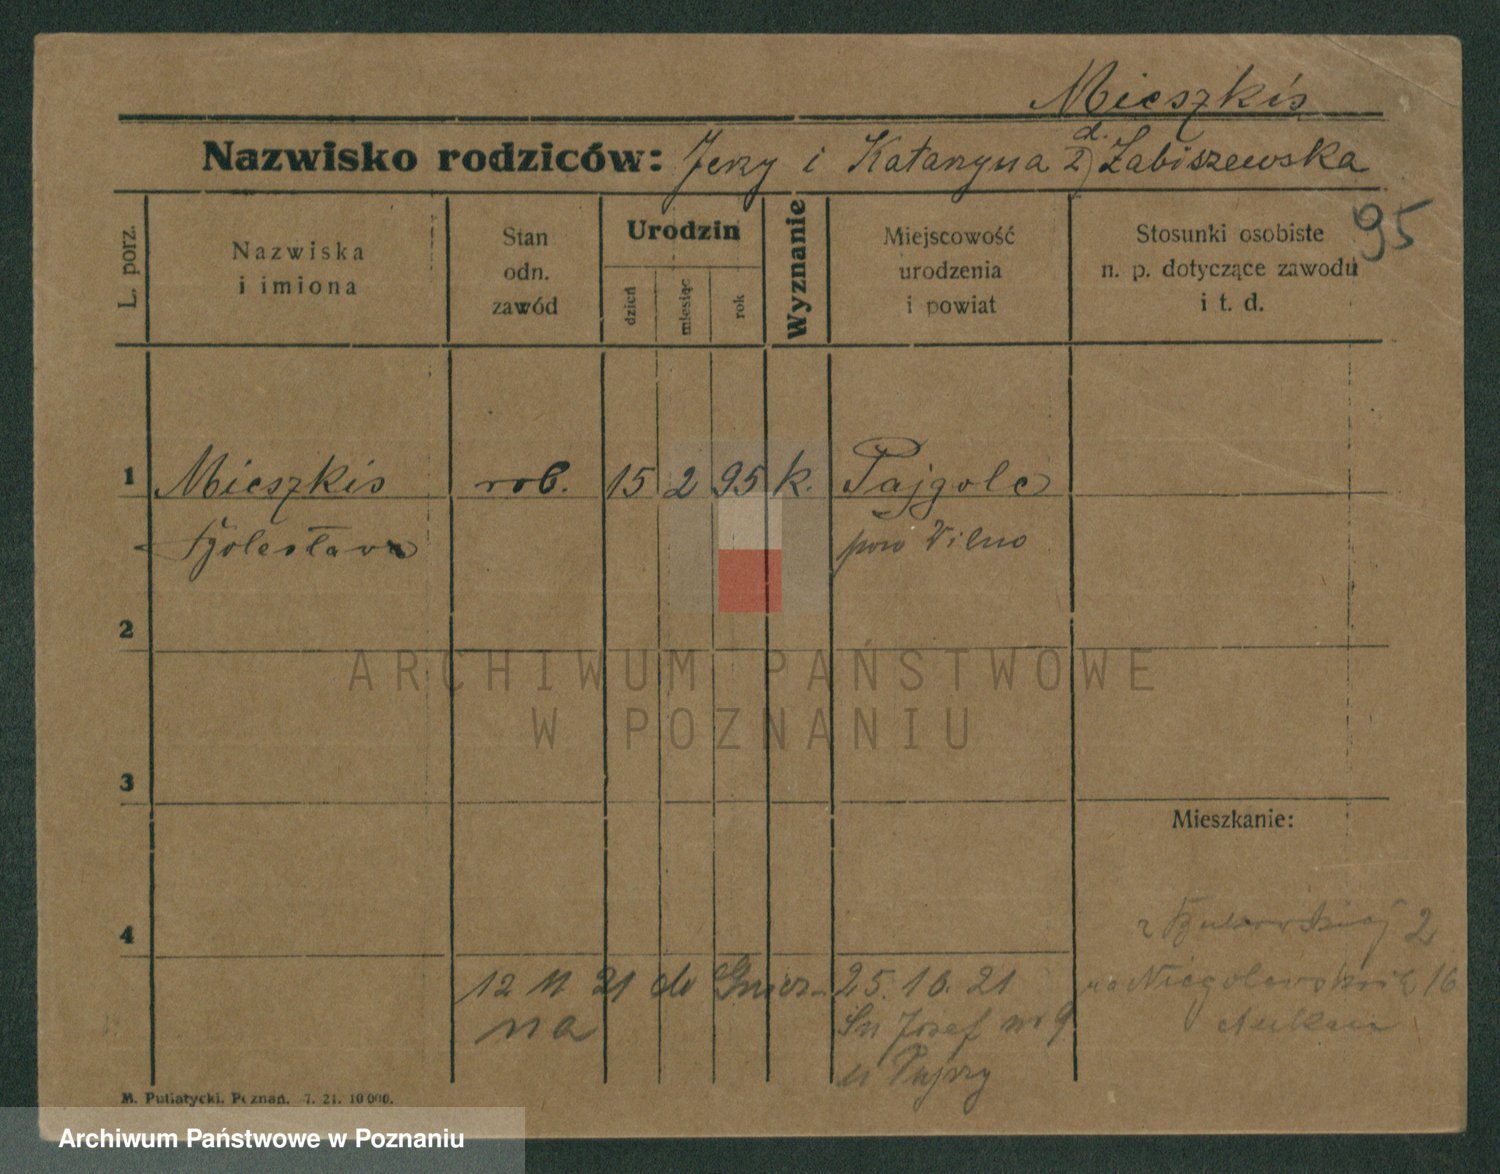 Mieszkis
Nazwisko rodziców: Jerzy i Katarzyna z d. Żabiszewska
95
L. porz.
Nazwiska
i imiona
Stan
odn.
zawód
Urodzin
dzień
miesiąc
rok
Wyznanie
Miejscowość
urodzenia
i powiat
Stosunki osobiste
n. p. dotyczące zawodu
i t. d.
1 Mieszkis rob. 15 2 95 k. Pajgole
Bolesław pow Wilno
2
ARCHIWUM PAŃSTWOWE
W POZNANIU
3
Mieszkanie:
4
z 2
12 11 21 do Gniez- 25.10.21 na Niegolewskich 16
na Józef nr 9
u
M. Putiatycki, Poznań. 7. 21. 10 000.
Archiwum Państwowe w Poznaniu